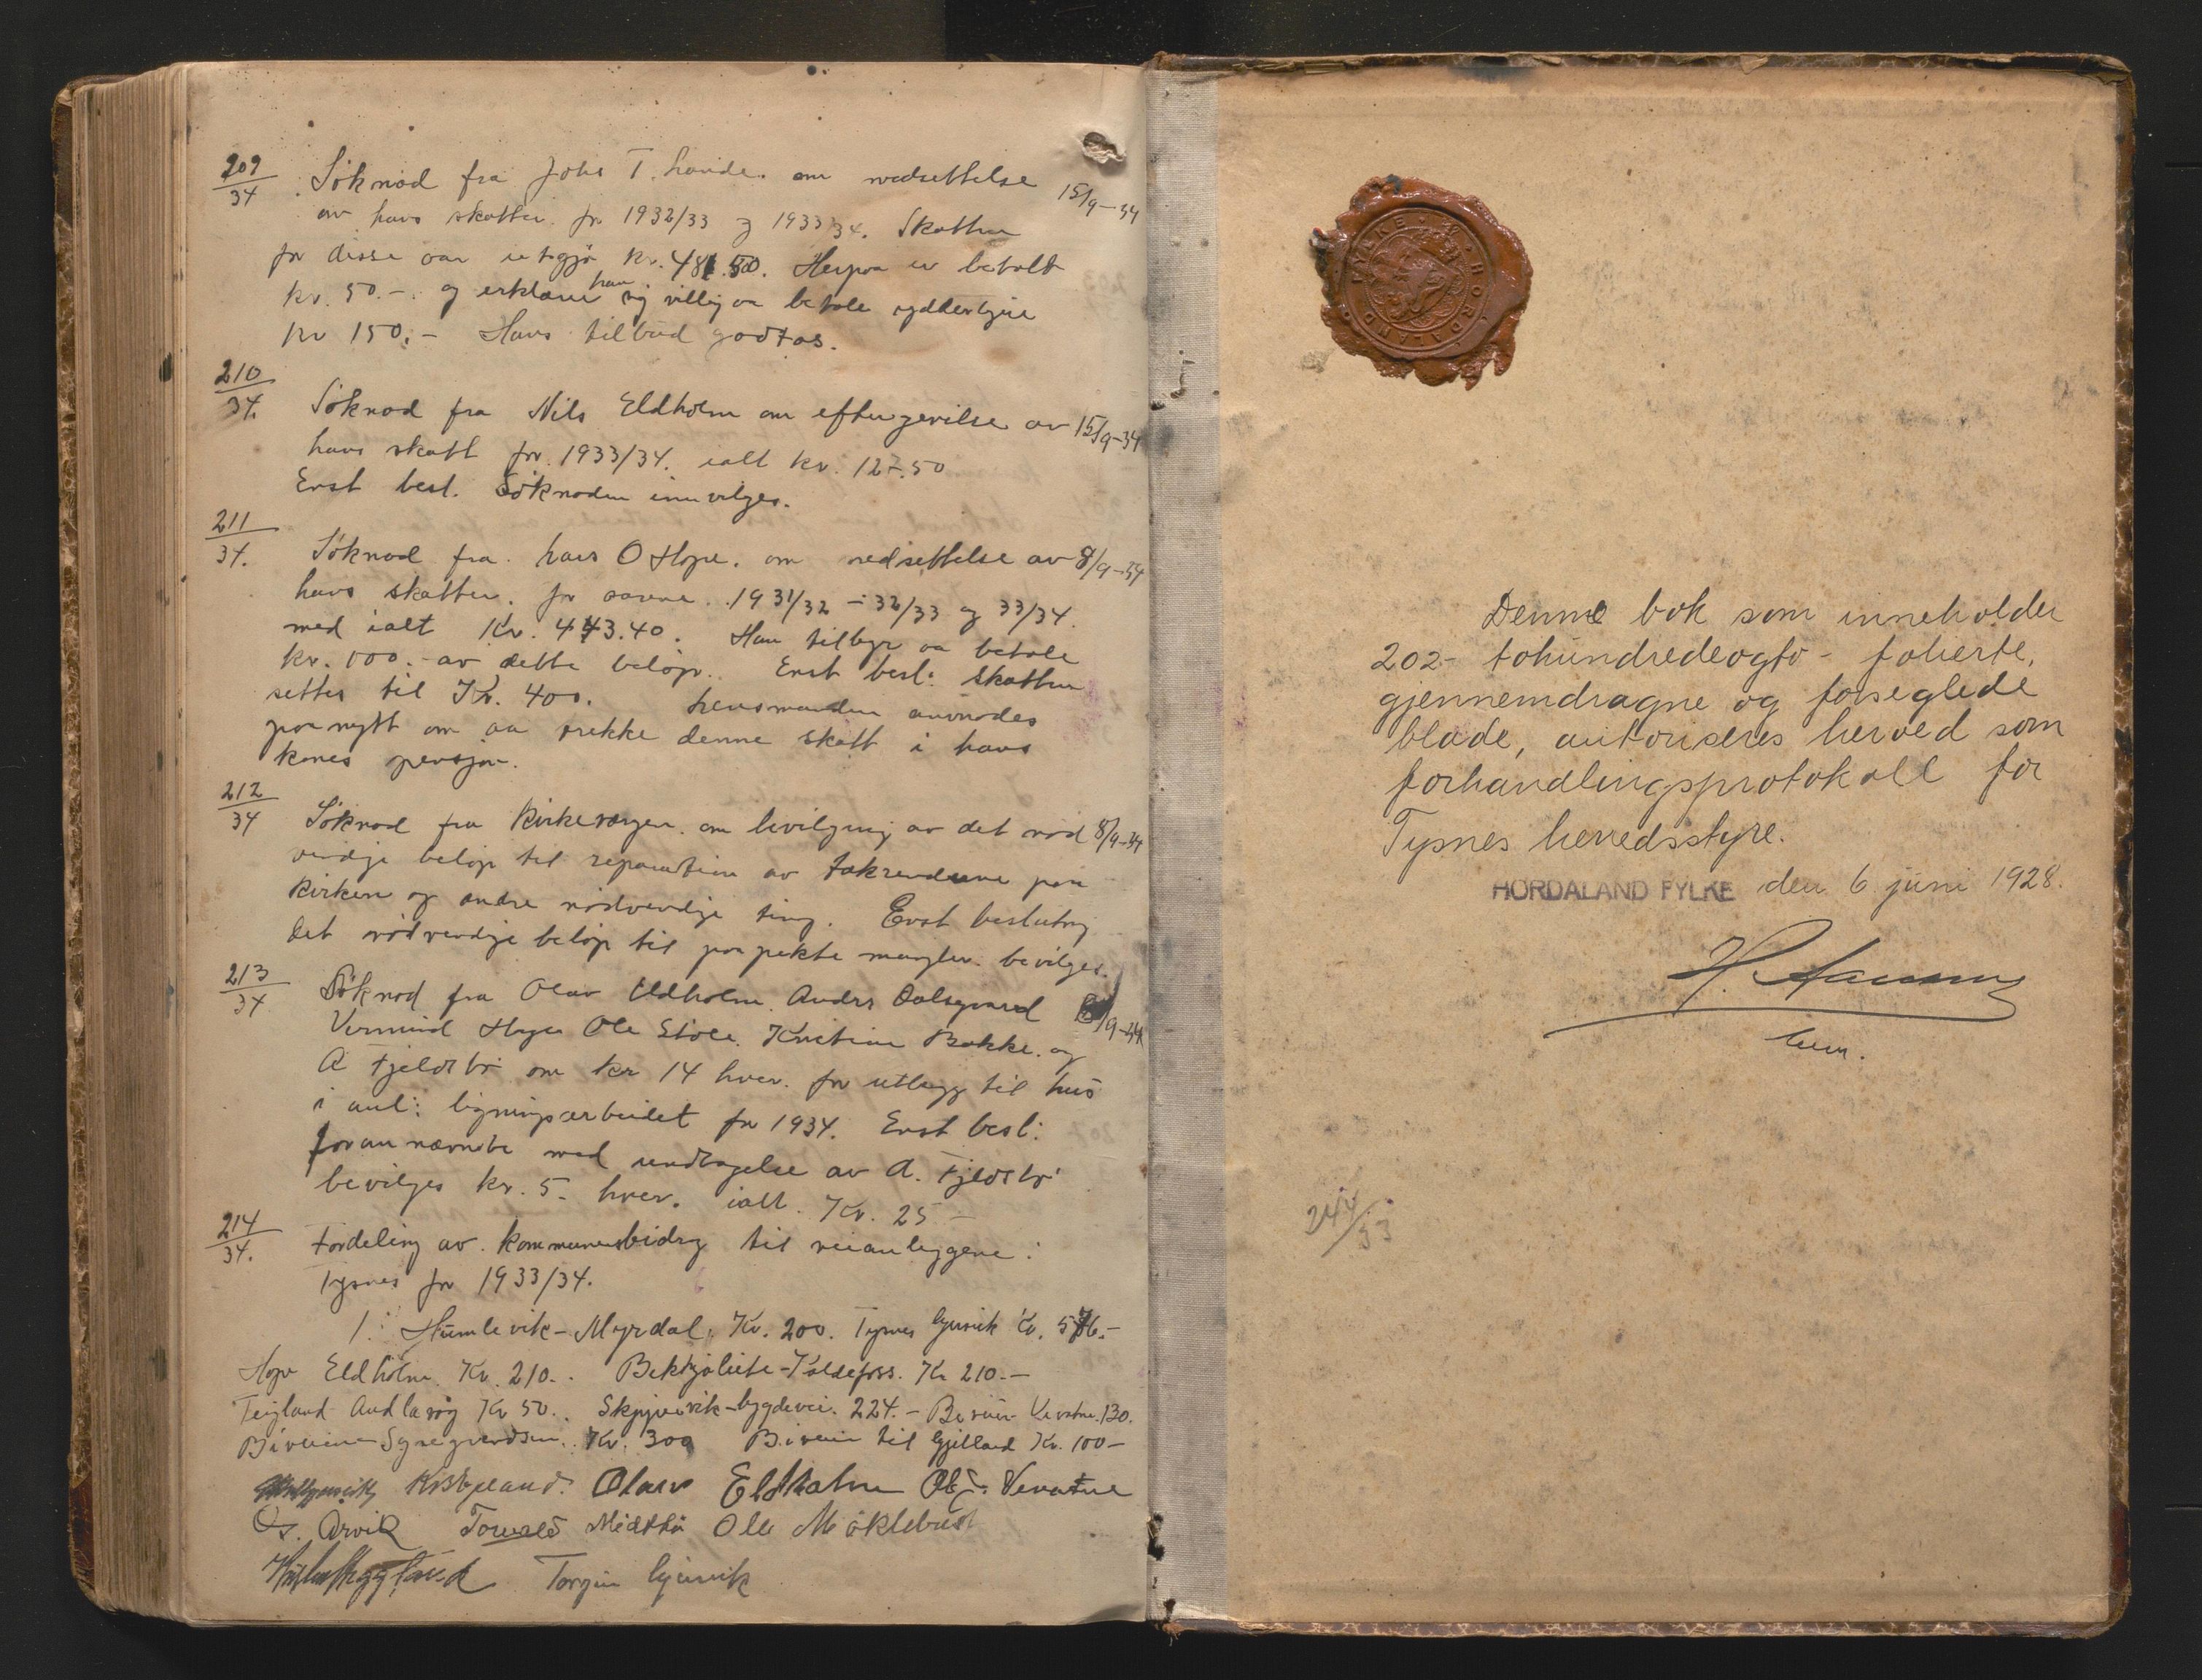 209/34 Søknad fra Johs T. om nedsettelse 15/9-34
av hans skatter for 1932/33 og 1933/34. Skatten
for disse aar utgjør kr. 481.50. Herpaa er betalt
kr. 50.- og erklærer han sig villig aa betale ydderligere
kr 150.- Hans tilbud godtas.
210/34. Søknad fra Nils Eldholm om eftergivelse av 15/9-34
hans skatt for 1933/34. ialt kr. 127.50
Enst besl. Søknaden innvilges.
211/34. Søknad fra Lars O Hope. om nedsettelse av 8/9-34
hans skatter. for aarene 1931/32 - 32/33 og 33/34.
med ialt Kr. 443.40. Han tilbyr aa betale
kr. 100.- av dette beløp. Enst besl: Skatten
settes til Kr. 400. Lensmanden anmodes
paa nytt om aa trekke denne skatt i hans
kones pensjon.
212/34 Søknad fra Kirkevergen om bevilgning av det nød 8/9-34
vendige beløp til reparation av takrendene paa
Kirken og andre nødvendige ting. Enst beslutning
det nødvendige beløp til paapekte mangler bevilges.
213/34 Søknad fra Olav Eldholm. Anders Dalsgaard /9-34
Vermund Hope Ole Støle. Kristian Bakke. og
A Fjeldsbø om kr 14 hver. for utlegg til hus
i anl: ligningsarbeidet for 1934. Enst besl:
forannævnte med undtagelse av A. Fjeldsbø
bevilges kr. 5.- hver. ialt Kr. 25-
214/34. Fordeling av kommunebidrag til veianleggene:
Tysnes for 1933/34.
1: Humlevik-Myrdal, Kr. 200. Tysnes Gjersvik Kr. 576.-
Hope Eldholm. Kr. 210.- Kaldefoss. Kr 210.-
Teigland Kr 50. -bygdevei. 224.- Vevatne. 130.
Kr. 300 Biveien til Gjelland Kr. 100-
Olav Eldholm Vevatne
O. Arvik Midttø Ole Møklebust
Torgeir Gjersvik
HORDALAND FYLKE
Denne bok som inneholder
202- tohundredeogto- folierte,
gjennemdragne og forseglede
blade, autoriseres herved som
forhandlingsprotokoll for
Tysnes herredsstyre.
HORDALAND FYLKE den 6 juni 1928.
244/33